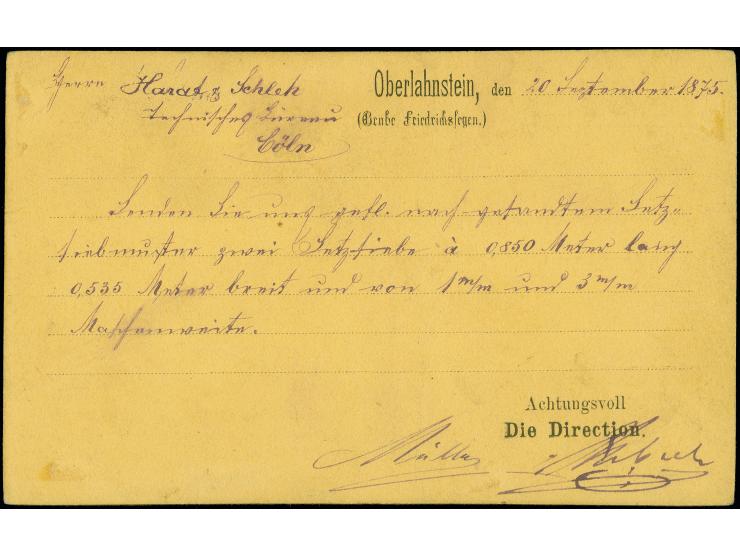 Herrn Harat & Schleh
Technisches Büreau
Cöln
Oberlahnstein, den 20 September 1875.
(Grube Friedrichssegen.)
Senden Sie uns gefl. nach gesandtem Setz-
siebmuster zwei Setzsiebe à 0,850 Meter lang
0,535 Meter breit und von 1 m/m und 3 m/m
Maschenweite.
Achtungsvoll
Die Direction.
Müller